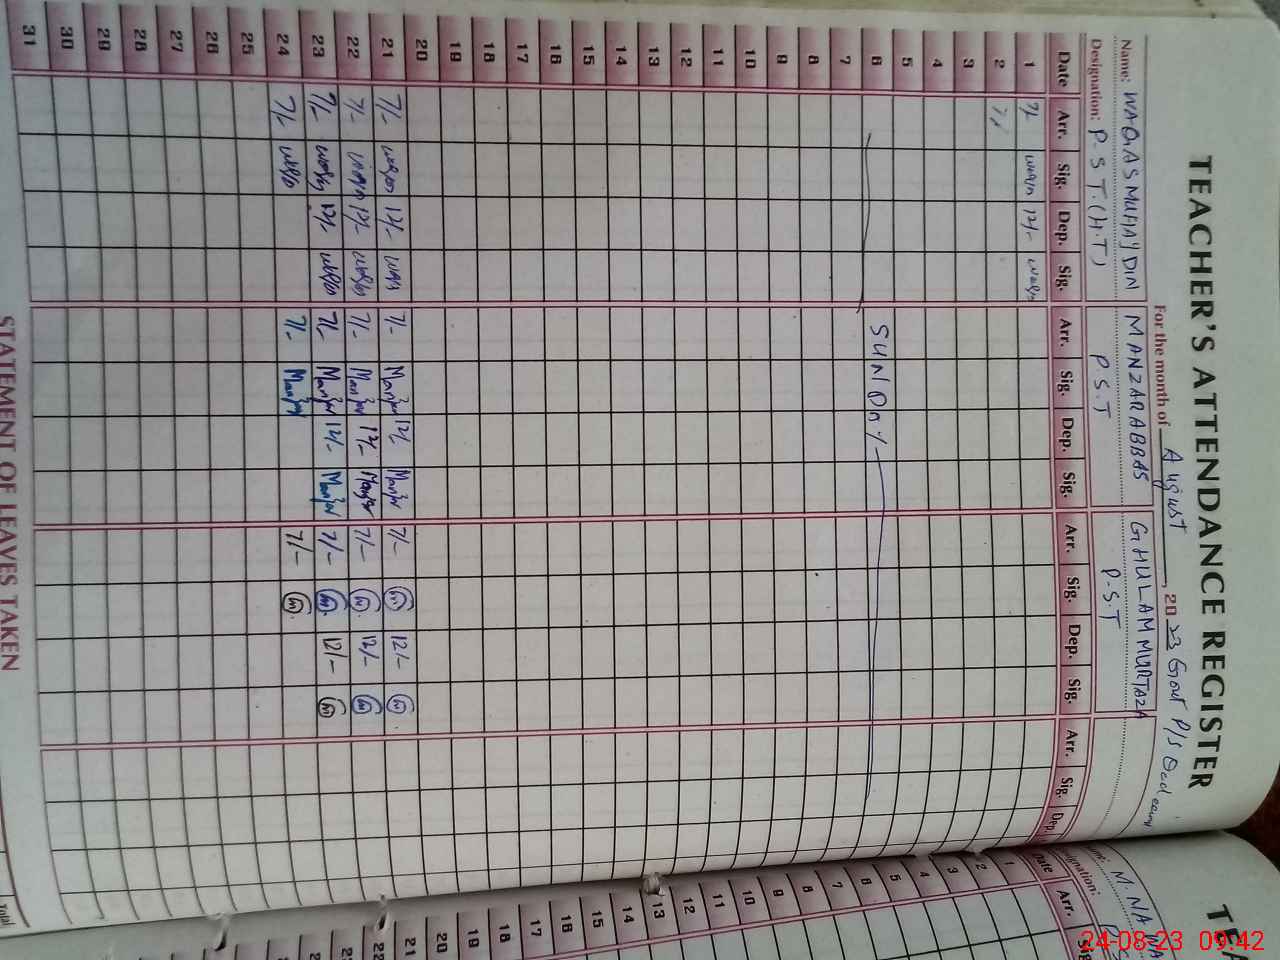 TEACHER'S ATTENDANCE REGISTER
For the month of August, 2023 Govt P/S
Name: WAQAS MUHAYDIN MANZAR ABBAS GHULAM MURTAZA
Designation: P.S.T (H.T) P.S.T P.S.T
Date Arr. Sig. Dep. Sig. Arr. Sig. Dep. Sig. Arr. Sig. Dep. Sig. Arr. Sig. Dep.
1 7/- waqas 12/- waqas
2 7/-
3
4
5
6 SUNDAY
7
8
9
10
11
12
13
14
15
16
17
18
19
20
21 7/- waqas 12/- waqas 7/- Manzar 12/- Manzar 7/- 12/-
22 7/- waqas 12/- waqas 7/- Manzar 12/- Manzar 7/- 12/-
23 7/- waqas 12/- waqas 7/- Manzar 12/- Manzar 7/- 12/-
24 7/- waqas 7/- Manzar 7/-
25
26
27
28
29
30
31
STATEMENT OF LEAVES TAKEN
Total
TEA
M. NA
Date Arr.
1
2
3
4
5
6
7
8
9
10
11
12
13
14
15
16
17
18
19
20
21
22
24-08-23 09:42